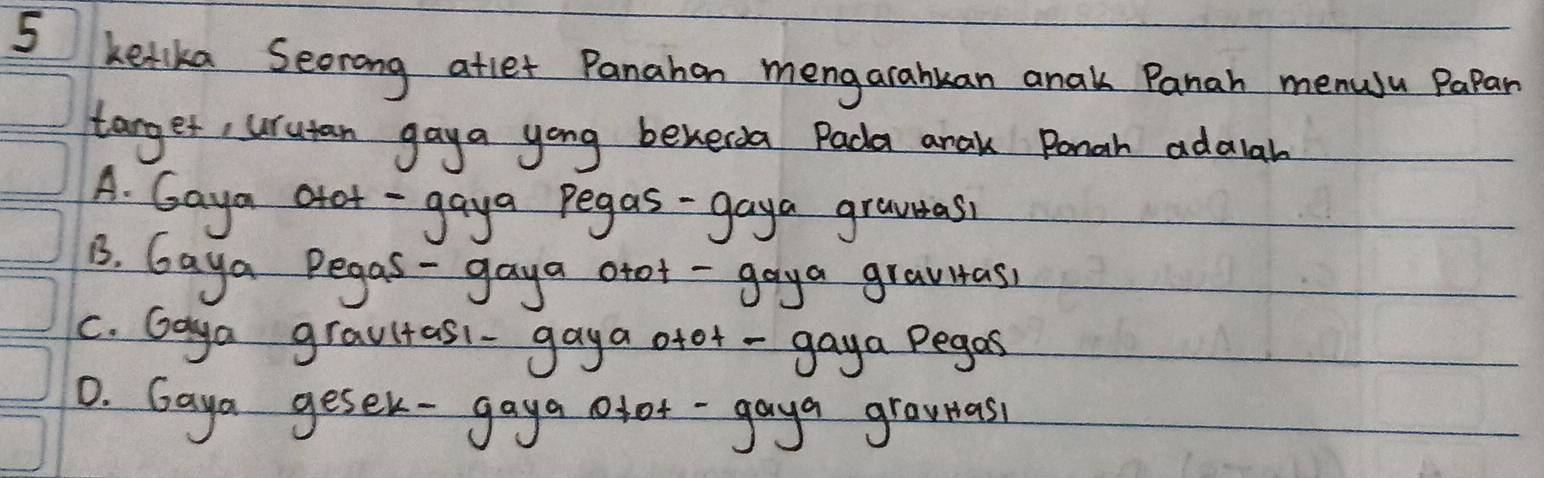 5 Ketika Seorang atlet Panahan mengarahkan anak Panah menuju Papan
target, urutan gaya yang bekerja Pada anak Panah adalah
A. Gaya otot - gaya Pegas - gaya gravitasi
B. Gaya Pegas - gaya otot - gaya gravitasi
C. Gaya gravitasi - gaya otot - gaya Pegas
D. Gaya gesek - gaya otot - gaya gravitasi